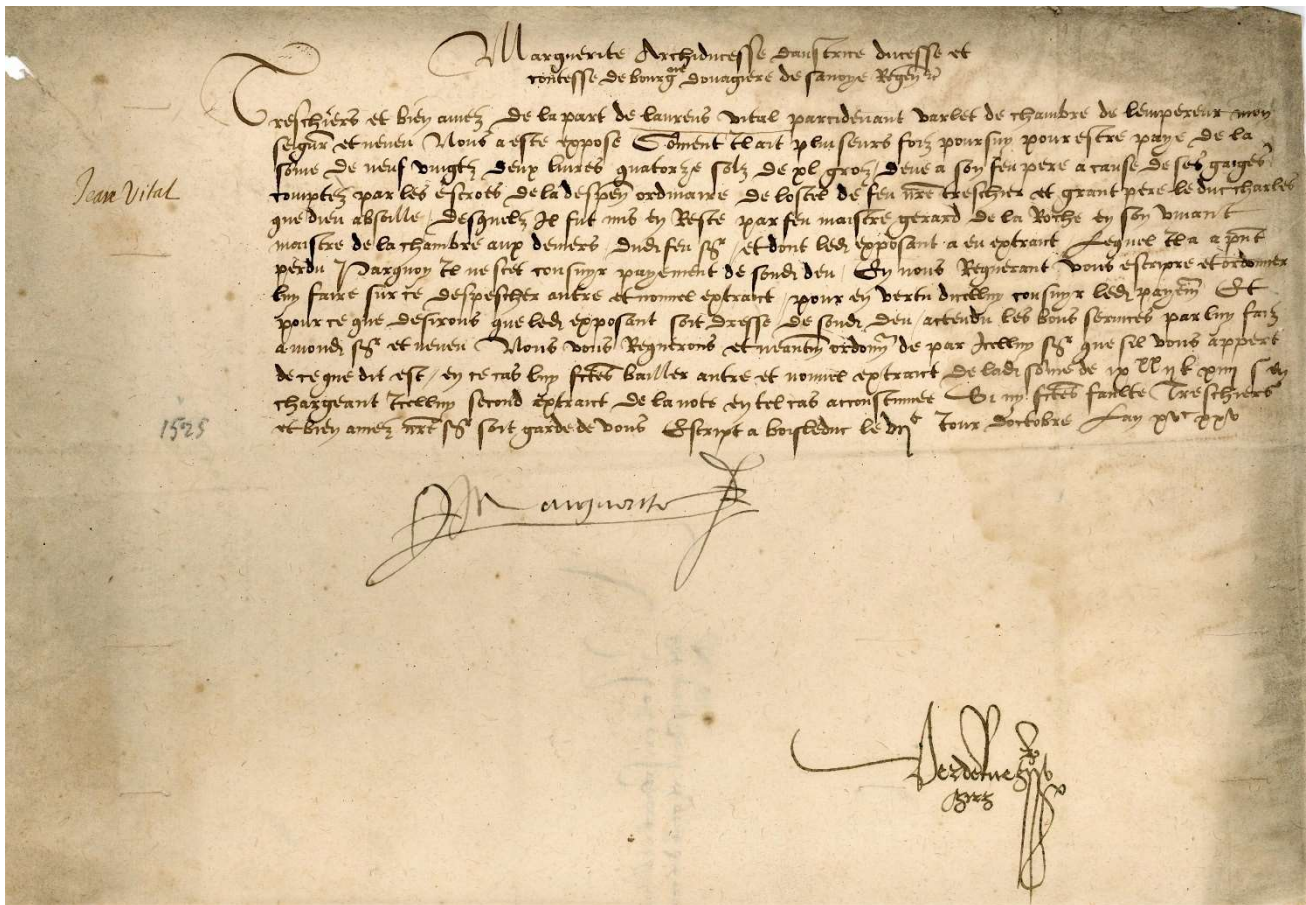 Marguerite Archiducesse daustrice ducesse et
contesse de bourgne douagiere de savoye Regen &c
Treschiers et bien amez De la part de laurens vital parcidevant varlet de chambre de lempereur mon
segnr et neveu Nous a este expose Coment Il ait pluseurs foiz poursuy pour estre paye de la
some de neuf vingtz deux livres quatorze solz de xl groz / deue a son feu pere a cause de ses gaiges
Jean Vital
comptez par les escroes de la despen ordinaire de lostel de feu nre treschier et grant pere le duc charles
que dieu absoille / Desquelz Il fut mis en Reste par feu maistre gerard de la Roche en son vivant
maistre de la chambre aux deniers / dudi feu sgr / et dont ledi exposant a eu extraict Lequel Il a a pnt
perdu Parquoy Il ne scet consuyr payement de sondi deu / En nous Requerant vous escripre et ordonner
luy faire sur ce despescher autre et nouvel extraict / pour en vertu dicelluy consuyr ledi payem Et
pour ce que desirons que ledi exposant soit dresse de sondi deu / actendu les bons services par luy faiz
a mondi sgr et neveu Nous vous Requerons et neantm ordonn de par Icelluy sgr que sil vous appert
de ce que dit est / en ce cas luy fctes bailler autre et nouvel extraict de ladi some de ix xx ij £ xiiij s en
chargeant Icelluy second extraict de la note en tel cas accoustumee Si ny fctes faulte Treschiers
et bien amez nre sgr soit garde de vous Escript a boisleduc le Jour doctobre Lan xvc xxv
1525
Marguerite